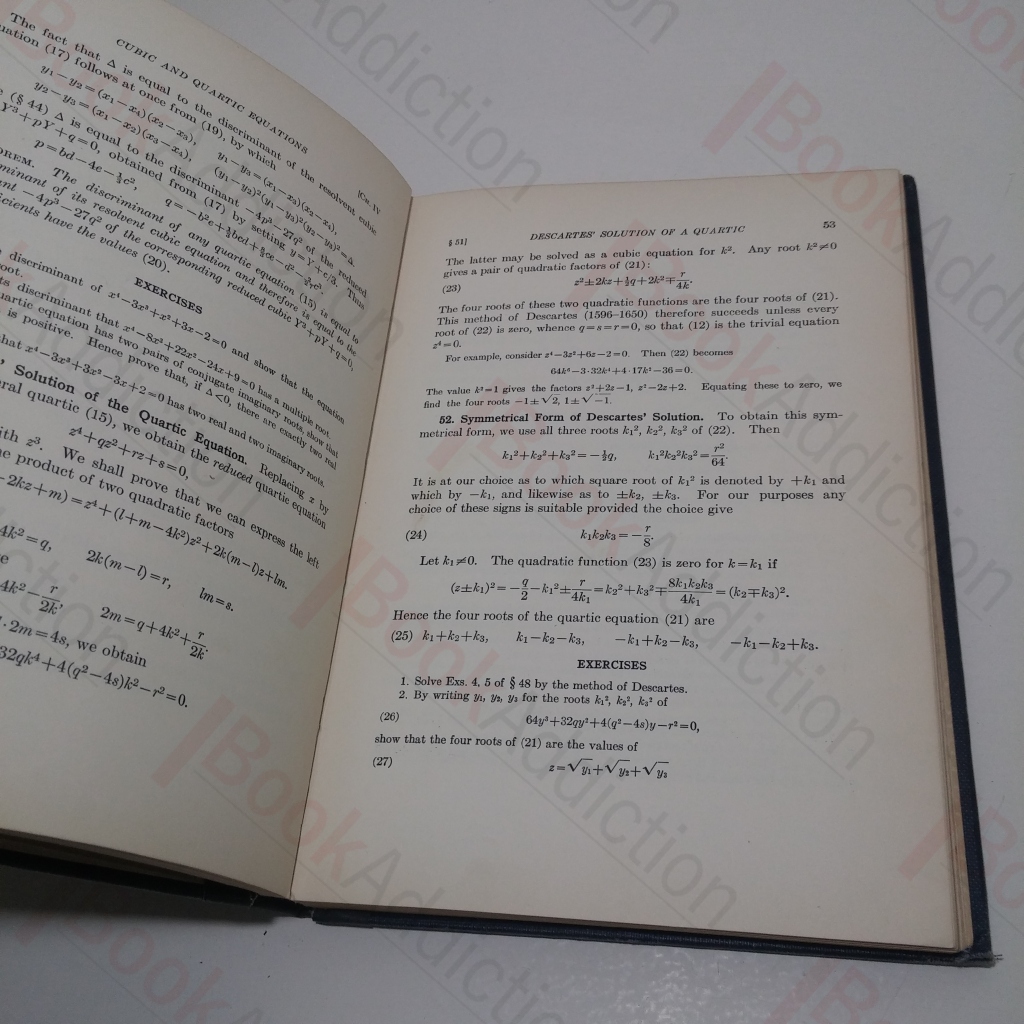 CUBIC AND QUARTIC EQUATIONS [CH. IV
The fact that Δ is equal to the discriminant of the resolvent cubic
uation (17) follows at once from (19), by which
y₁−y₂=(x₁−x₄)(x₂−x₃), y₁−y₃=(x₁−x₃)(x₂−x₄),
y₂−y₃=(x₁−x₂)(x₃−x₄), (y₁−y₂)²(y₁−y₃)²(y₂−y₃)²=Δ.
(§ 44) Δ is equal to the discriminant −4p³−27q² of the reduced
Y³+pY+q=0, obtained from (17) by setting y=Y+c/3. Thus
p=bd−4e−⅓c², q=−b²e+⅓bcd+
OREM. The discriminant of any quartic equation (15) is equal to
minant of its resolvent cubic equation and therefore is equal to the
nt −4p³−27q² of the corresponding reduced cubic Y³+pY+q=0,
cients have the values (20).
EXERCISES
discriminant of x⁴−3x³+x²+3x−2=0 and show that the equation
root.
ts discriminant that x⁴−8x³+22x²−24x+9=0 has a multiple root.
uartic equation has two pairs of conjugate imaginary roots, show that
is positive. Hence prove that, if Δ<0, there are exactly two real
hat x⁴−3x³+3x²−3x+2=0 has two real and two imaginary roots.
Solution of the Quartic Equation. Replacing x by
eral quartic (15), we obtain the reduced quartic equation
z⁴+qz²+rz+s=0,
ith z³. We shall prove that we can express the left
e product of two quadratic factors
−2kz+m)=z⁴+(l+m−4k²)z²+2k(m−l)z+lm.
4k²=q, 2k(m−l)=r, lm=s.
e
4k²−r/2k, 2m=q+4k²+r/2k.
·2m=4s, we obtain
32qk⁴+4(q²−4s)k²−r²=0.
§ 51] DESCARTES' SOLUTION OF A QUARTIC 53
The latter may be solved as a cubic equation for k². Any root k²≠0
gives a pair of quadratic factors of (21):
(23) z²±2kz+½q+2k²∓r/4k.
The four roots of these two quadratic functions are the four roots of (21).
This method of Descartes (1596–1650) therefore succeeds unless every
root of (22) is zero, whence q=s=r=0, so that (12) is the trivial equation
z⁴=0.
For example, consider z⁴−3z²+6z−2=0. Then (22) becomes
64k⁶−3·32k⁴+4·17k²−36=0.
The value k²=1 gives the factors z²+2z−1, z²−2z+2. Equating these to zero, we
find the four roots −1±√2, 1±√−1.
52. Symmetrical Form of Descartes' Solution. To obtain this sym-
metrical form, we use all three roots k₁², k₂², k₃² of (22). Then
k₁²+k₂²+k₃²=−½q, k₁²k₂²k₃²=r²/64.
It is at our choice as to which square root of k₁² is denoted by +k₁ and
which by −k₁, and likewise as to ±k₂, ±k₃. For our purposes any
choice of these signs is suitable provided the choice give
(24) k₁k₂k₃=−r/8.
Let k₁≠0. The quadratic function (23) is zero for k=k₁ if
(z±k₁)²=−q/2−k₁²±r/4k₁=k₂²+k₃²∓8k₁k₂k₃/4k₁=(k₂∓k₃)².
Hence the four roots of the quartic equation (21) are
(25) k₁+k₂+k₃, k₁−k₂−k₃, −k₁+k₂−k₃, −k₁−k₂+k₃.
EXERCISES
1. Solve Exs. 4, 5 of § 48 by the method of Descartes.
2. By writing y₁, y₂, y₃ for the roots k₁², k₂², k₃² of
(26) 64y³+32qy²+4(q²−4s)y−r²=0,
show that the four roots of (21) are the values of
(27) z=√y₁+√y₂+√y₃
BookAddiction